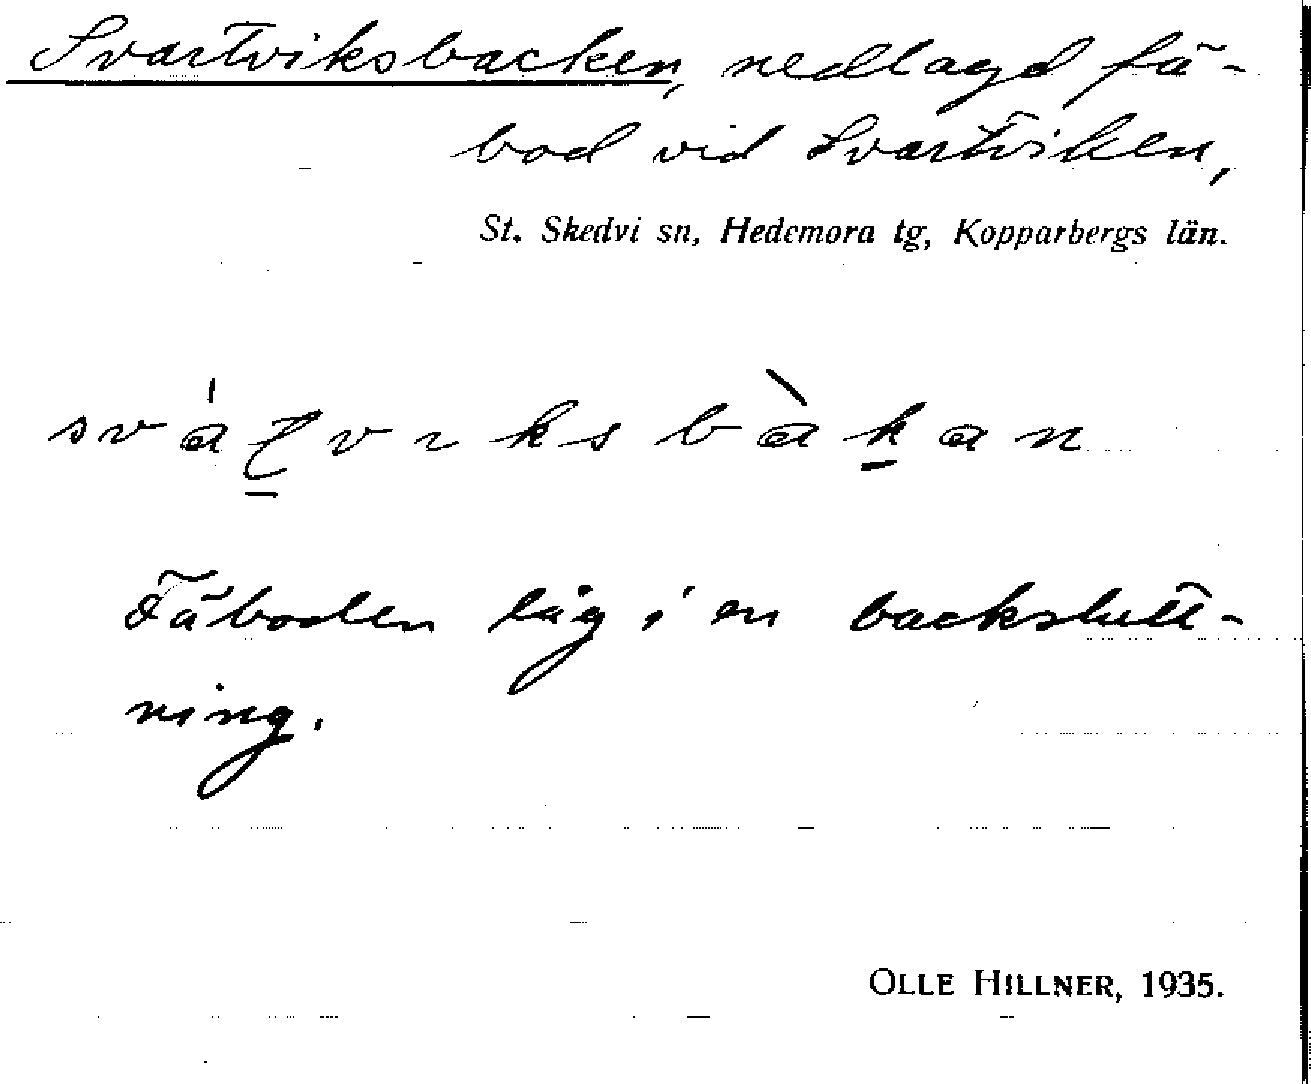 Svartviksbacken, nedlagd fä-
bod vid Svartviken,
St. Skedvi sn, Hedemora tg, Kopparbergs län.
Fäboden låg i en backslutt-
ning.
OLLE HILLNER, 1935.